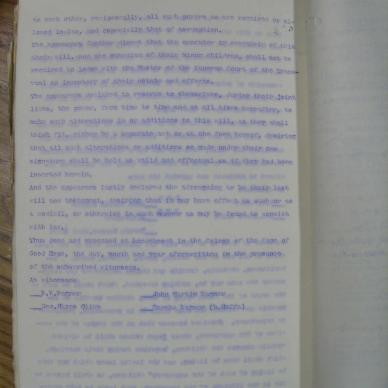 to each other, reciprocally, all such powers as are required or al-
lowed in law, and especially that of assumption.
The appearers further direct that the executor or executrix of this
their will, and the guardian of their minor children, shall not be
required to lodge with the Master of the Supreme Court of the
an inventor of their estate and effects.
The appearers declared to reserve to themselves, during their joint
lives, the power, from time to time and at all times hereafter, to
make such alterations in or additions to this will, as they shall
think fit, either by a separate act or at the foot hereof, desiring
that all such alterations or additions so made under their own
signature shall be held as valid and effectual as if they had been
inserted herein.
And the appearers lastly declared the aforegoing to be their last
will and testament, desiring that it may have effect as such or as
a codicil, or otherwise in such manner as may be found to consist
with law.
Thus done and executed at in the Colony of the Cape of
Good Hope, the day, month and year aforewritten in the presence
of the subscribed witnesses.
As witnesses
John